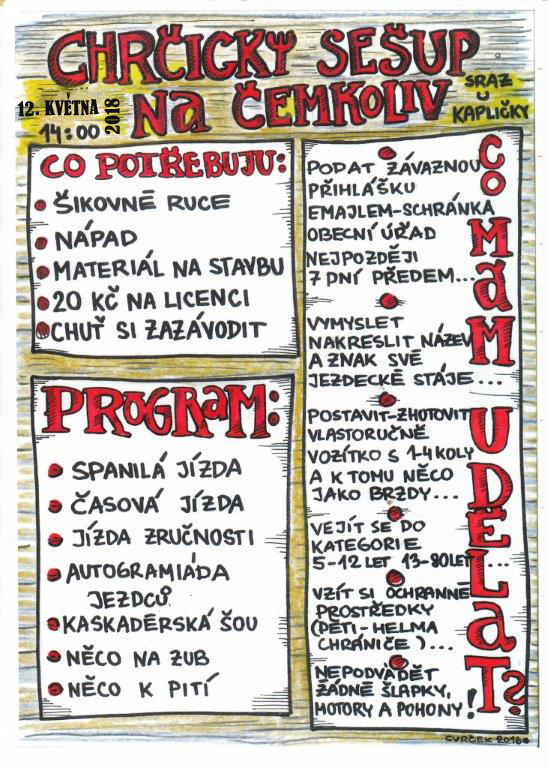 CHRČICKÝ SEŠUP
NA ČEMKOLIV
12. KVĚTNA
2018
14:00
SRAZ
U
KAPLIČKY
CO POTŘEBUJU:
ŠIKOVNÉ RUCE
NÁPAD
MATERIÁL NA STAVBU
20 KČ NA LICENCI
CHUŤ SI ZAZÁVODIT
PROGRAM:
SPANILÁ JÍZDA
ČASOVÁ JÍZDA
JÍZDA ZRUČNOSTI
AUTOGRAMIÁDA
JEZDCŮ
KASKADÉRSKÁ ŠOU
NĚCO NA ZUB
NĚCO K PITÍ
CO MÁM UDĚLAT?
PODAT ZÁVAZNOU
PŘIHLÁŠKU
EMAJLEM-SCHRÁNKA
OBECNÍ ÚŘAD
NEJPOZDĚJI
7 DNÍ PŘEDEM...
VYMYSLET
NAKRESLIT NÁZEV
A ZNAK SVÉ
JEZDECKÉ STÁJE...
POSTAVIT-ZHOTOVIT
VLASTORUČNĚ
VOZÍTKO S 1-4 KOLY
A K TOMU NĚCO
JAKO BRZDY...
VEJÍT SE DO
KATEGORIE
5-12 LET 13-80LET...
VZÍT SI OCHRANNÉ
PROSTŘEDKY
(DĚTI-HELMA
CHRÁNIČE)...
NEPODVÁDĚT
ŽÁDNÉ ŠLAPKY,
MOTORY A POHONY!
CVRČEK 2016